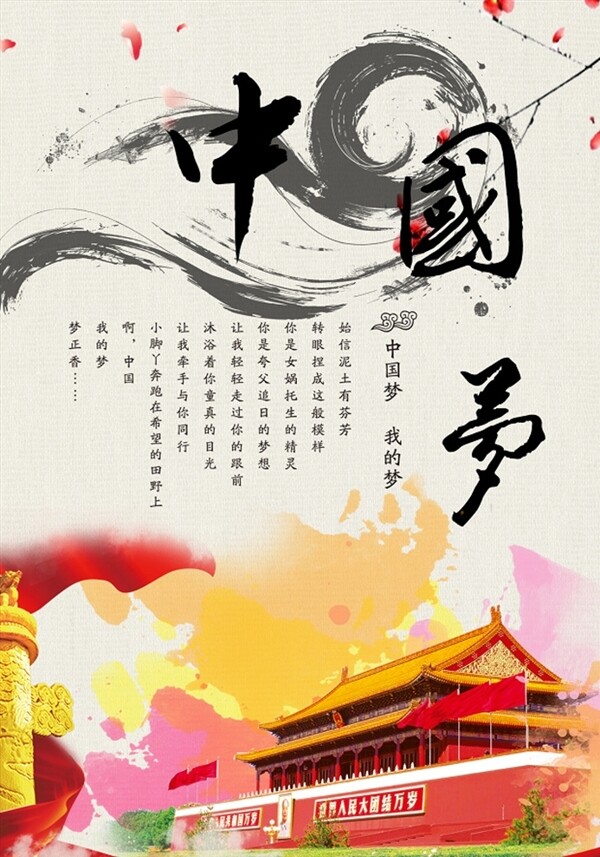 中
國
夢
中国梦 我的梦
始信泥土有芬芳
转眼捏成这般模样
你是女娲托生的精灵
你是夸父追日的梦想
让我轻轻走过你的跟前
沐浴着你童真的目光
让我牵手与你同行
小脚丫奔跑在希望的田野上
啊，中国
我的梦
梦正香……
人民共和国万岁
世界人民大团结万岁